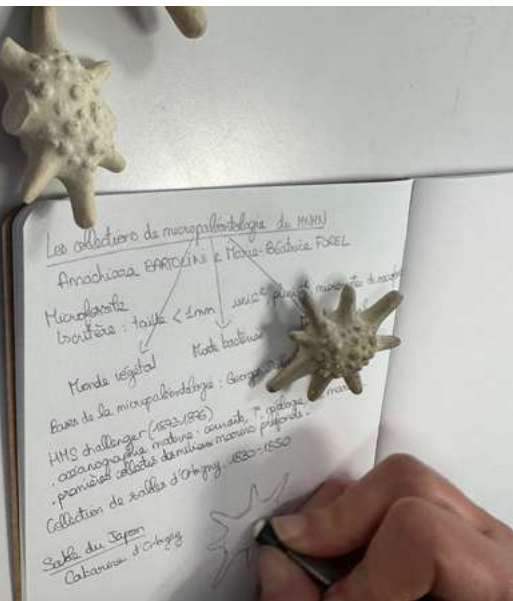 Les collections de micropaléontologie du MNHN
Annachiara BARTOLINI & Marie-Béatrice FOREL
Microfossile
↳ critère : taille < 1mm
Monde végétal
Monde bactérien
Bases de la micropaléontologie : Georges
HMS challenger (1893-1896)
. océanographie moderne : courants, T°,
. premières collectes des milieux marins profonds.
Collection de sables d'Orbigny 1830-1850
Sable du Japon
Calcarina d'Orbigny